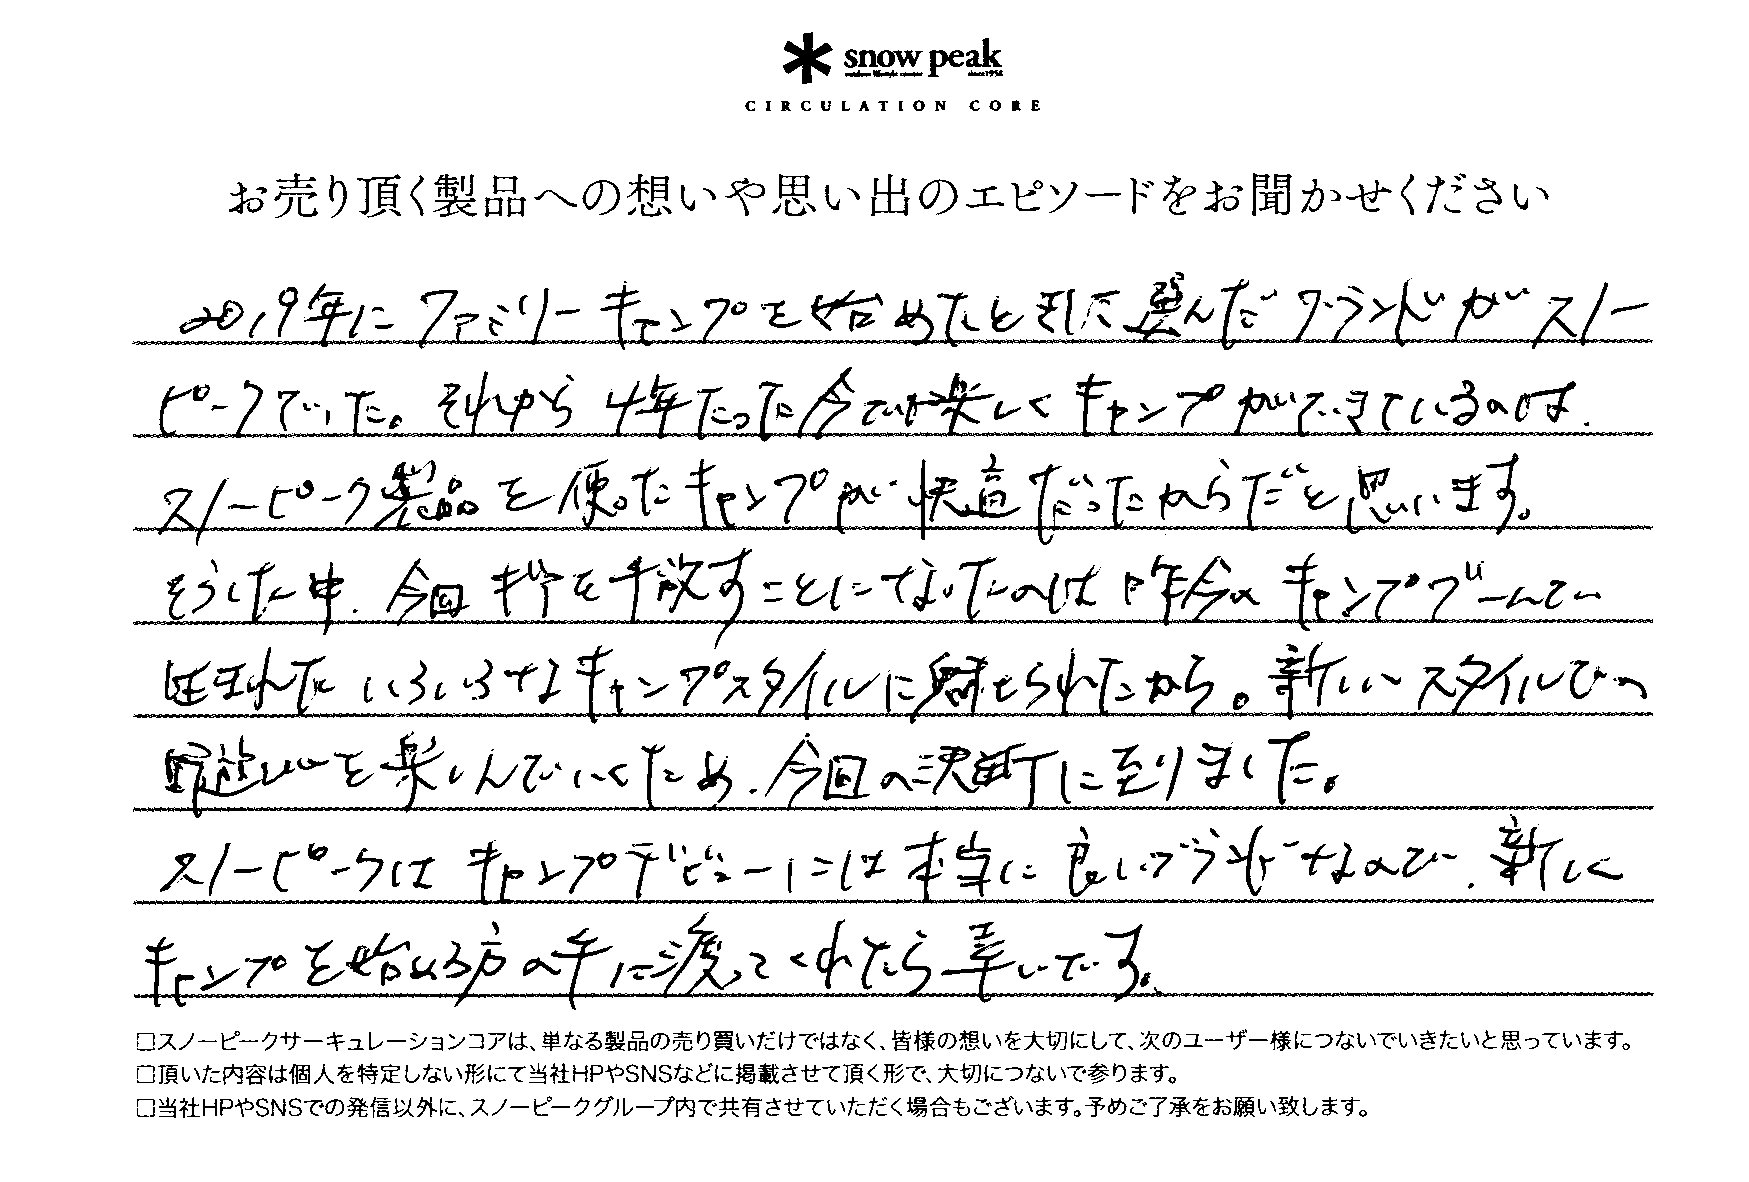 snow peak
outdoor lifestyle creator since1958
CIRCULATION CORE
お売り頂く製品への想いや思い出のエピソードをお聞かせください
2019年にファミリーキャンプを始めたときに選んだブランドがスノー
ピークでした。それから4年たった今でも楽しくキャンプができているのは、
スノーピーク製品を使ったキャンプが快適だったからだと思います。
そうした中、今回ギアを手放すことになったのは昨今のキャンプブームで
生まれたいろいろなキャンプスタイルに魅せられたから。新しいスタイルでの
野遊びを楽しんでいくため、今回の決断に至りました。
スノーピークはキャンプデビューには本当に良いブランドなので、新しく
キャンプを始める方の手に渡ってくれたら幸いです。
□スノーピークサーキュレーションコアは、単なる製品の売り買いだけではなく、皆様の想いを大切にして、次のユーザー様につないでいきたいと思っています。
□頂いた内容は個人を特定しない形にて当社HPやSNSなどに掲載させて頂く形で、大切につないで参ります。
□当社HPやSNSでの発信以外に、スノーピークグループ内で共有させていただく場合もございます。予めご了承をお願い致します。